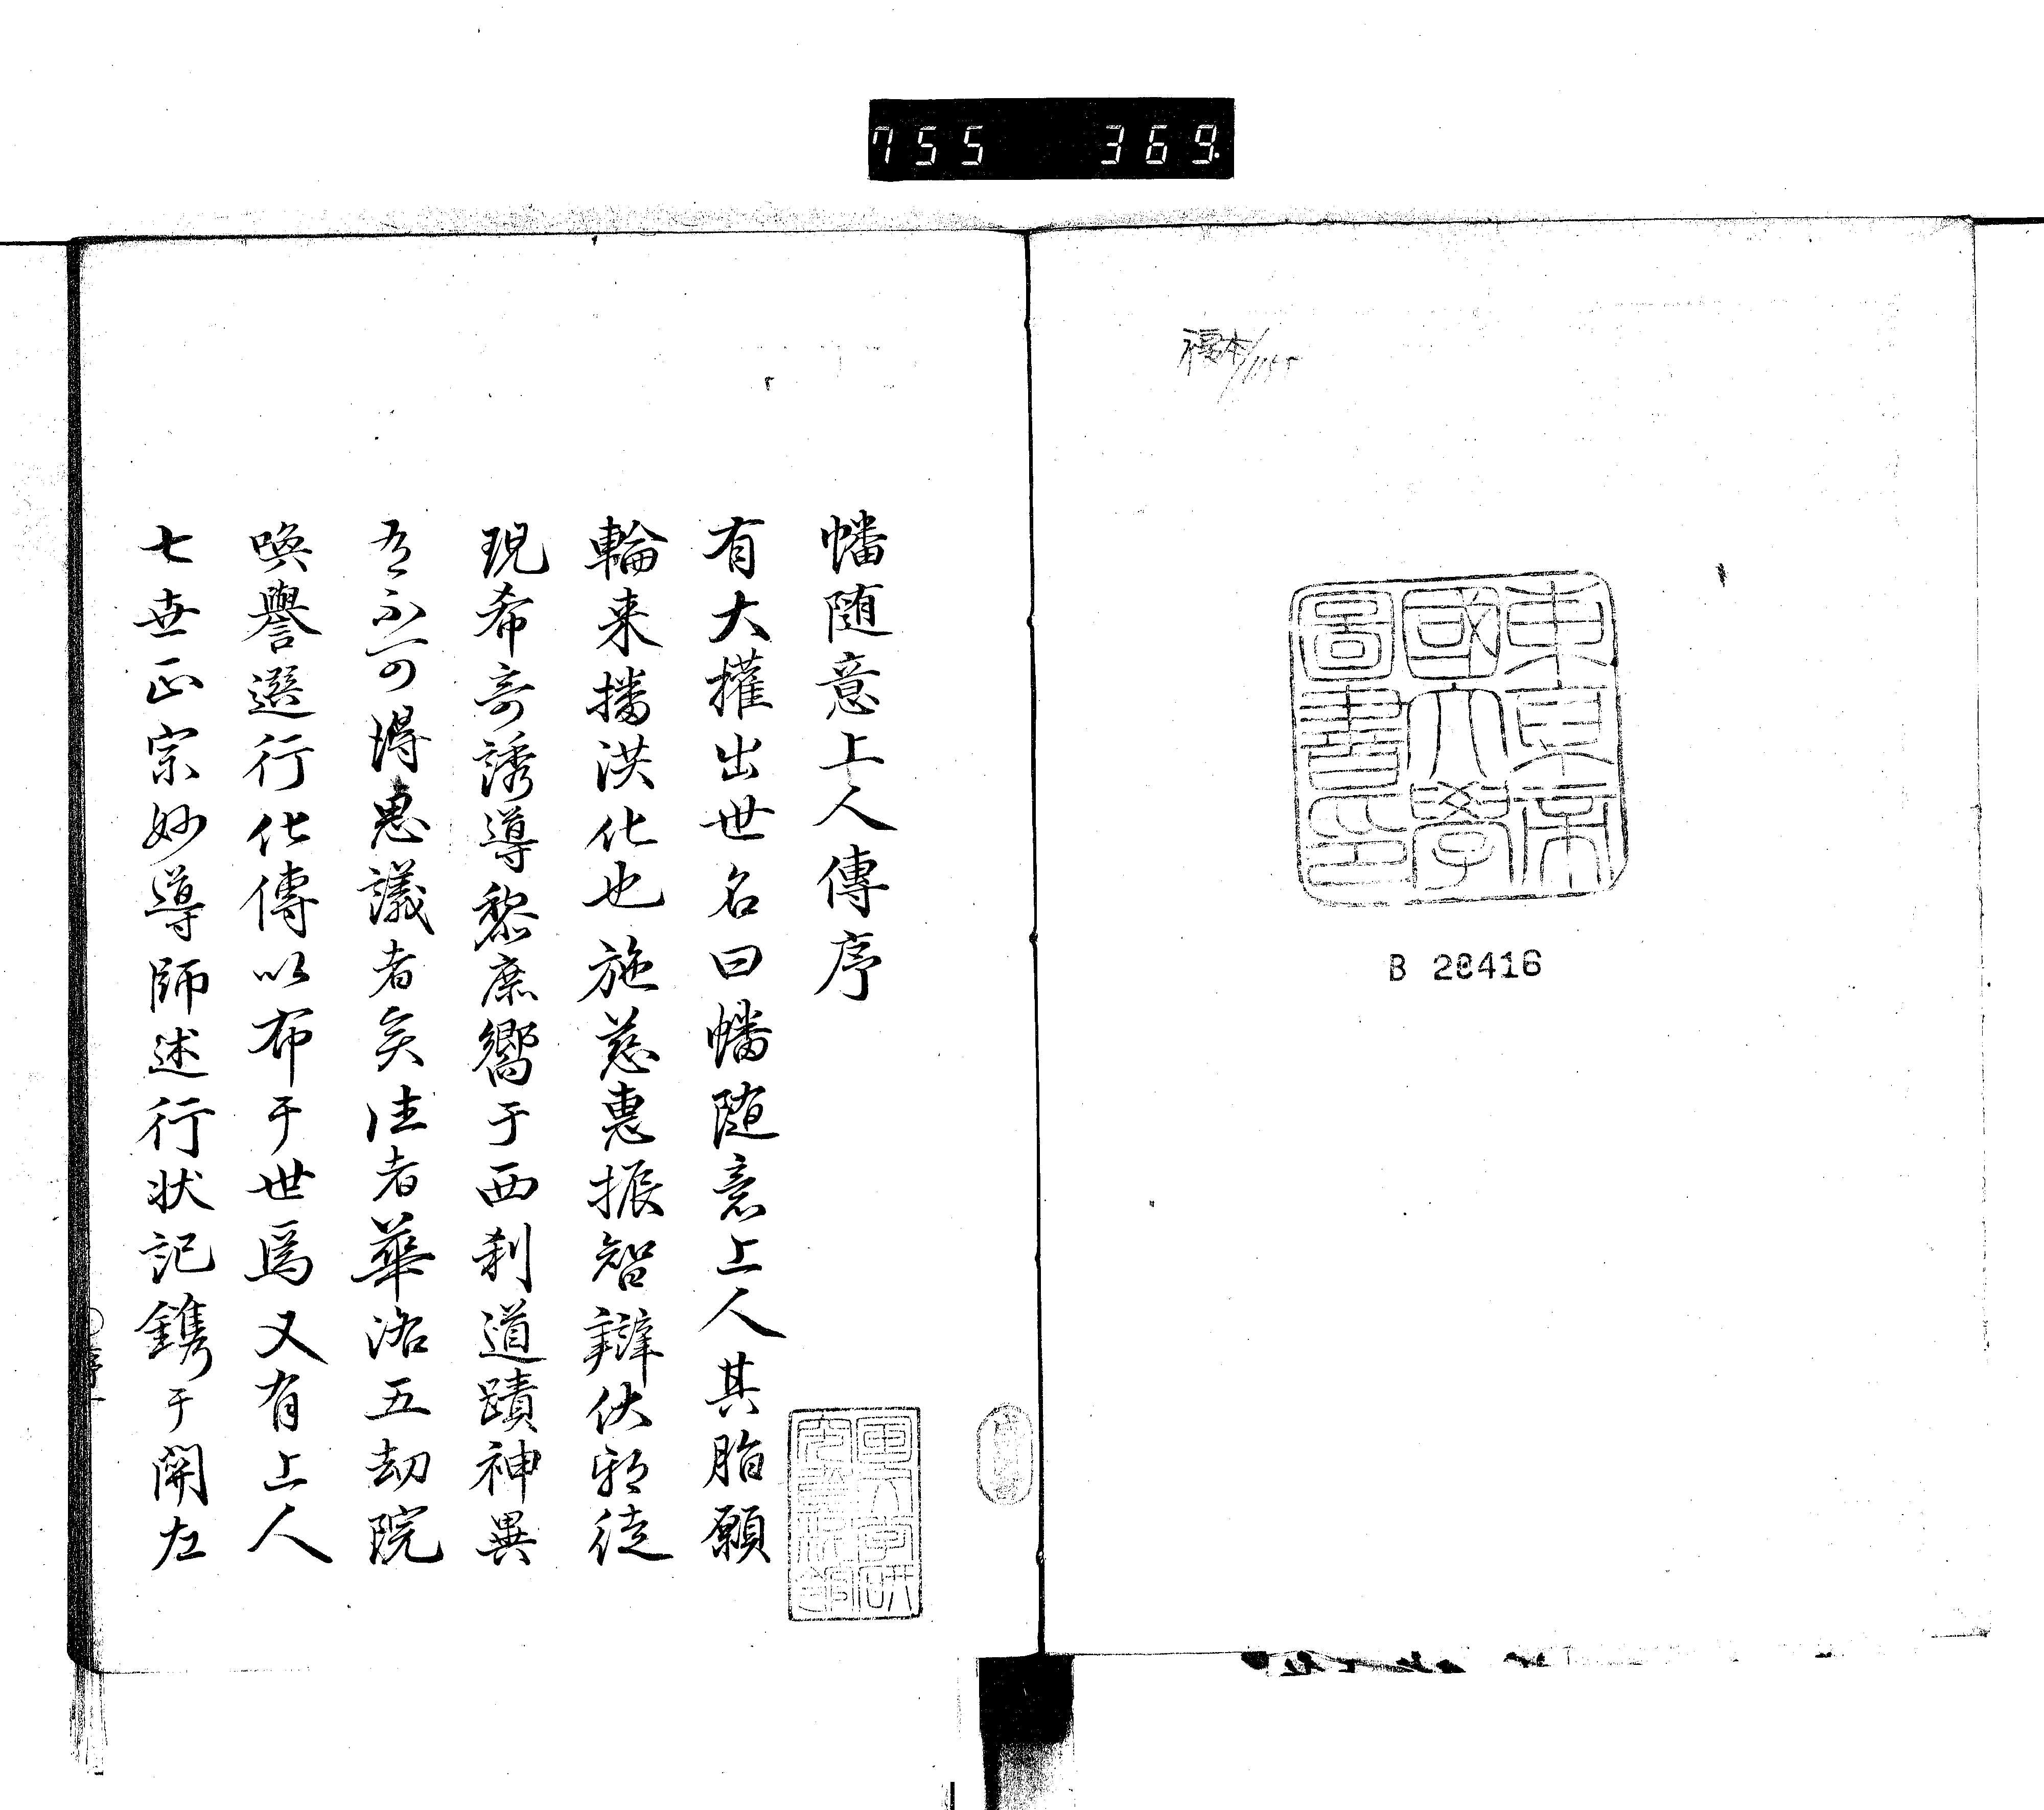 755 369.
東京帝
國大學
圖書印
B 28416
幡随意上人傳序
有大權出世名曰幡随意上人其脂願
輪来播洪化也施慈惠振智辯伏邪徒
現希奇誘導黎庶嚮于西刹道蹟神異
有不可得思議者矣往者華洛五劫院
喚譽選行化傳以布于世焉又有上人
七世正宗妙導師述行状記鐫于開左